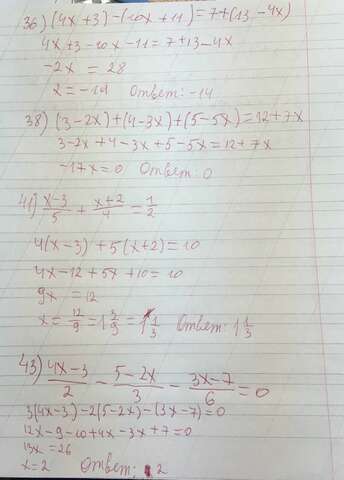 36) (4x+3)-(10x+11)=7+(13-4x)
4x+3-10x-11=7+13-4x
-2x = 28
x = -14 Ответ: -14
38) (3-2x)+(4-3x)+(5-5x)=12+7x
3-2x+4-3x+5-5x=12+7x
-17x=0 Ответ: 0
41) \frac{x-3}{5} + \frac{x+2}{4} = \frac{1}{2}
4(x-3)+5(x+2)=10
4x-12+5x+10=10
9x = 12
x = \frac{12}{9} = 1\frac{3}{9} = 1\frac{1}{3} Ответ: 1\frac{1}{3}
43) \frac{4x-3}{2} - \frac{5-2x}{3} - \frac{3x-7}{6} = 0
3(4x-3)-2(5-2x)-(3x-7)=0
12x-9-10+4x-3x+7=0
13x=26
x=2 Ответ: 2